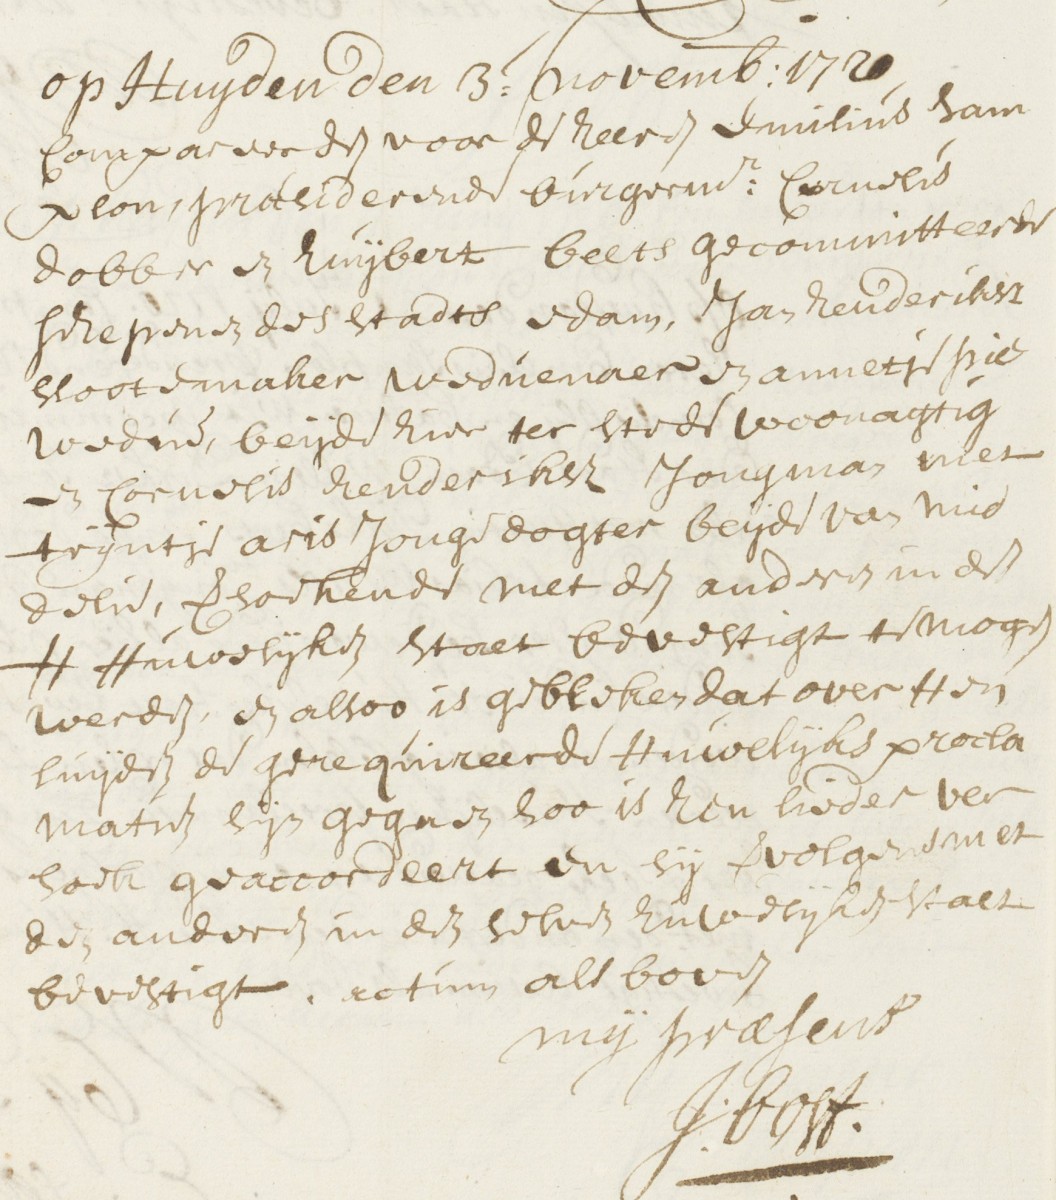 op Huyden den 3: novemb: 1720
Compareerden voor de heeren Emilius Sam
plon, præsiderende burgermr: Cornelis
dobber en huijbert beets gecommitteerde
schepenen des stadts edam, Jan henderiksz
slootemaker weduenaer en annetje pie
wedue, beijde hier ter stede woonagtig
en Cornelis henderiksz Jongman met
trijntje aris Jonge dogter beijde van mid
delie, versoekende met den anderen in den
H Huwelijken staet bevestigt te mogen
werden, en alsoo is gebleken dat over Hen
luijden de gerequireerde Huwelijks procla
matien sijn gegaen soo is hen lieder ver
soek geaccordeert en sij vervolgens met
den anderen in den selven huwelijken staet
bevestigt. actum als boven
mij præsent
J. bost.